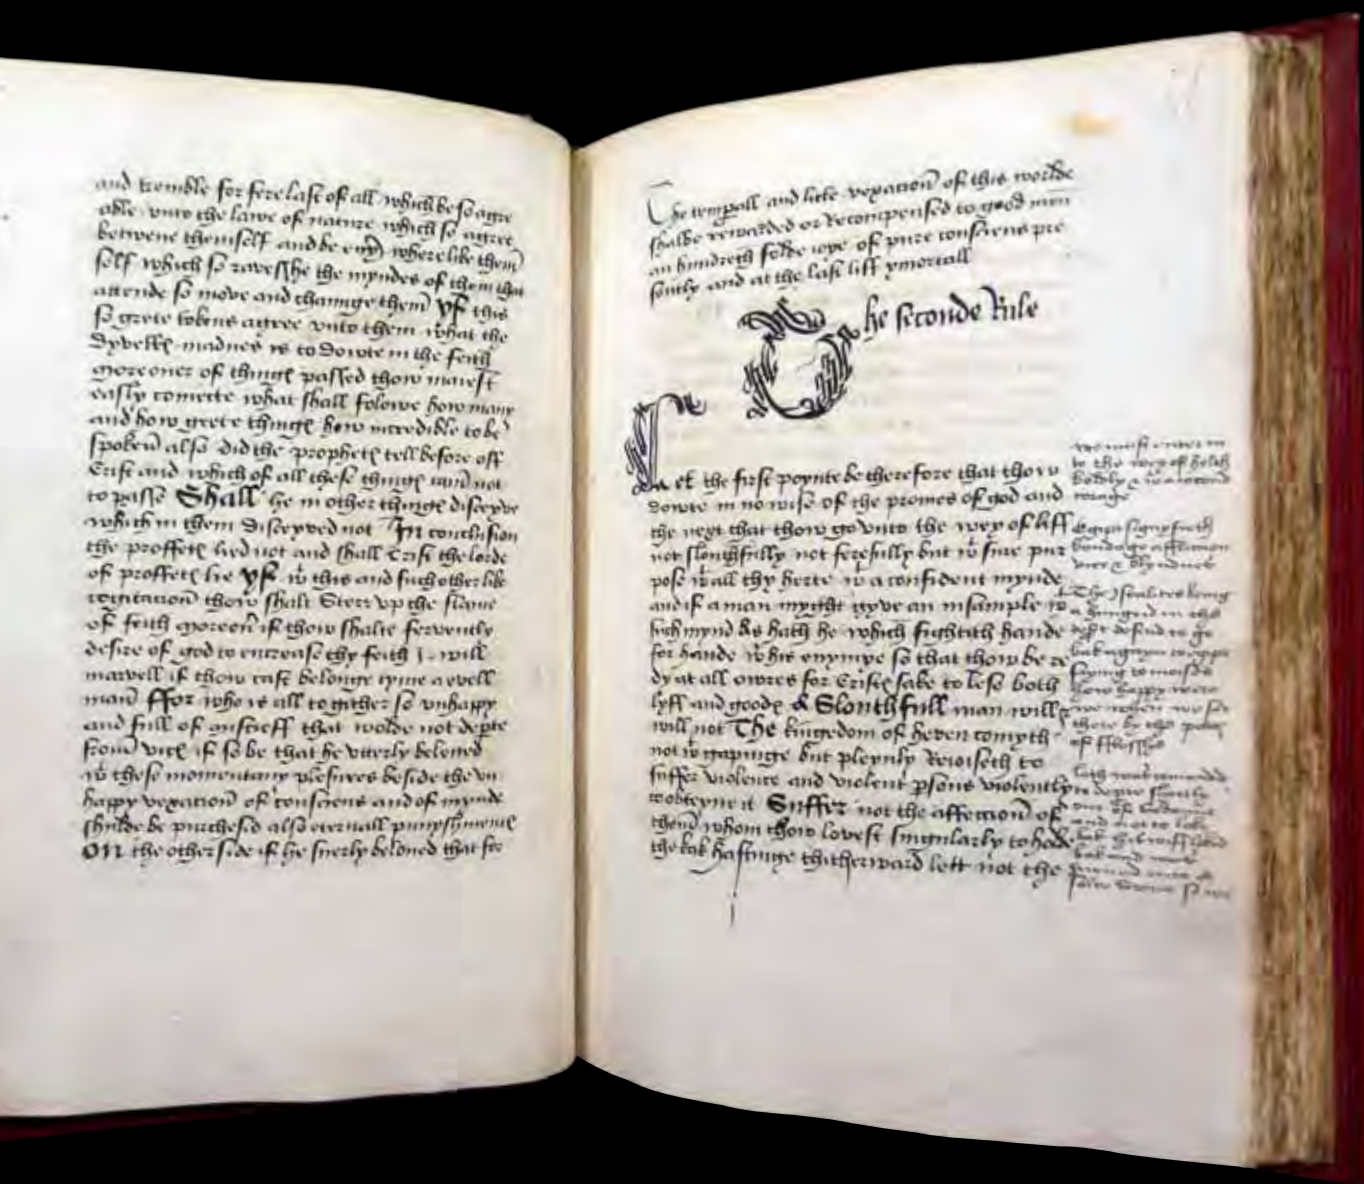 and tremble for fere last of all which be so agre
able vnto the lawe of nature which so agree
betwene themself and be euery where like them
self which so ravesshe the myndes of them that
attende so move and chaunge them yf this
so grete tokens agree vnto them what the
dyvells madnes is to dowte in the feith
moreouer of thinges passed thow maiest
easly coniecte what shall folowe how many
and how grete thinges how incredible to be
spoken also did the prophetes tell before off
Crist and which of all these thinges cam not
to passe Shall he in other thinges disceyve
which in them disceyved not In conclusion
the proffetes lied not and shall Crist the lorde
of proffetes lie yf wt this and such other like
cogitacion thow shalt sterr vp the flame
of feith moreouer if thow shalte fervently
desire of god to encrease thy feith I will
marvell if thow cast belonge tyme a evell
man ffor who is all togither so vnhappy
and full of mistieff that wolde not departe
from vices if so be that he vtterly beleued
wt these momentany plesures beside the vn
happy vexacion of consciens and of mynde
shulde be purchesid also eternall punyshmentes
On the other side if he suerly beloued that for
The temporall and litle vexacion of this worlde
shalbe rewarded or recompensed to good men
an hundreth folde ioye of pure consciens pre
sently and at the last liff ymortall
The seconde Rule
Let the first poynte be therefore that thow
dowte in no wise of the promes of god and
the next that thow go vnto the wey of liff
not slouthfully not ferefully but wt sure pur
pose wt all thy herte wt a confident mynde
and if a man myght gyve an insample wt
such mynd As hath he which fightith hande
for hande wt his enymye so that thow be re
dy at all owres for Cristes sake to lese both
lyff and goodes A Slouthfull man will
will not The kingedom of heven comyth
not to gapinge but pleynly Reioiseth to
suffer violence and violent persons violently
to obteyne it Suffer not the affeccion of
them whom thow lovest singularly to holde
the bak hastinge thitherward lett not the
we must enter in
to the wey of helth
boldly &
corage
Egipt signyfieth
bondage affliction
vice & blyndnes
The Israelites being
a hungred in the
desert desired to go
bak agayn to egipt
saying to moises
how happy were
we when we set
there by the pottes
of fflesshe